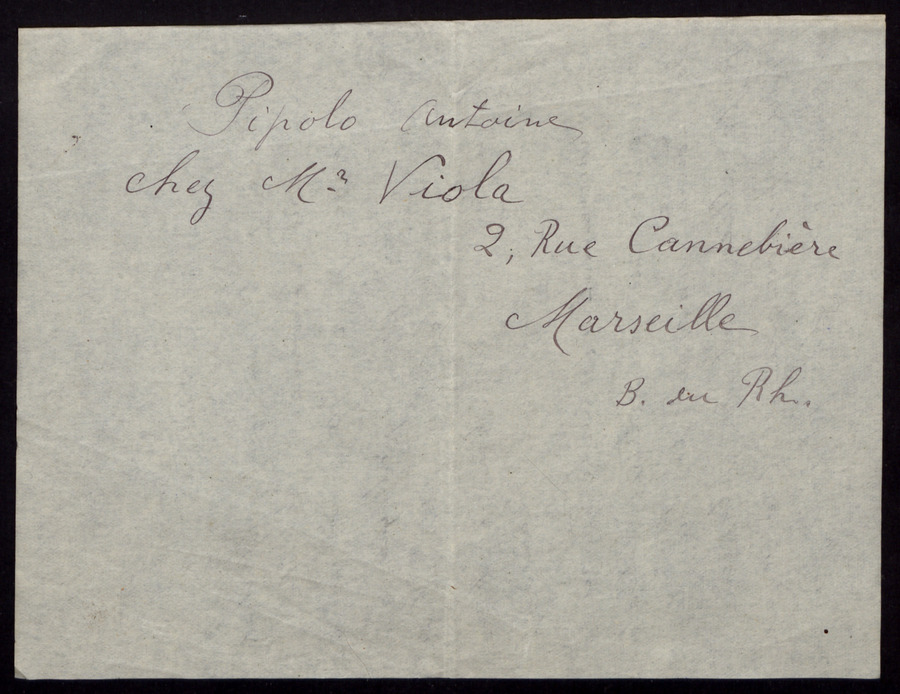 Pipolo Antoine
chez Mr Viola
2, Rue Cannebière
Marseille
B. du Rh.